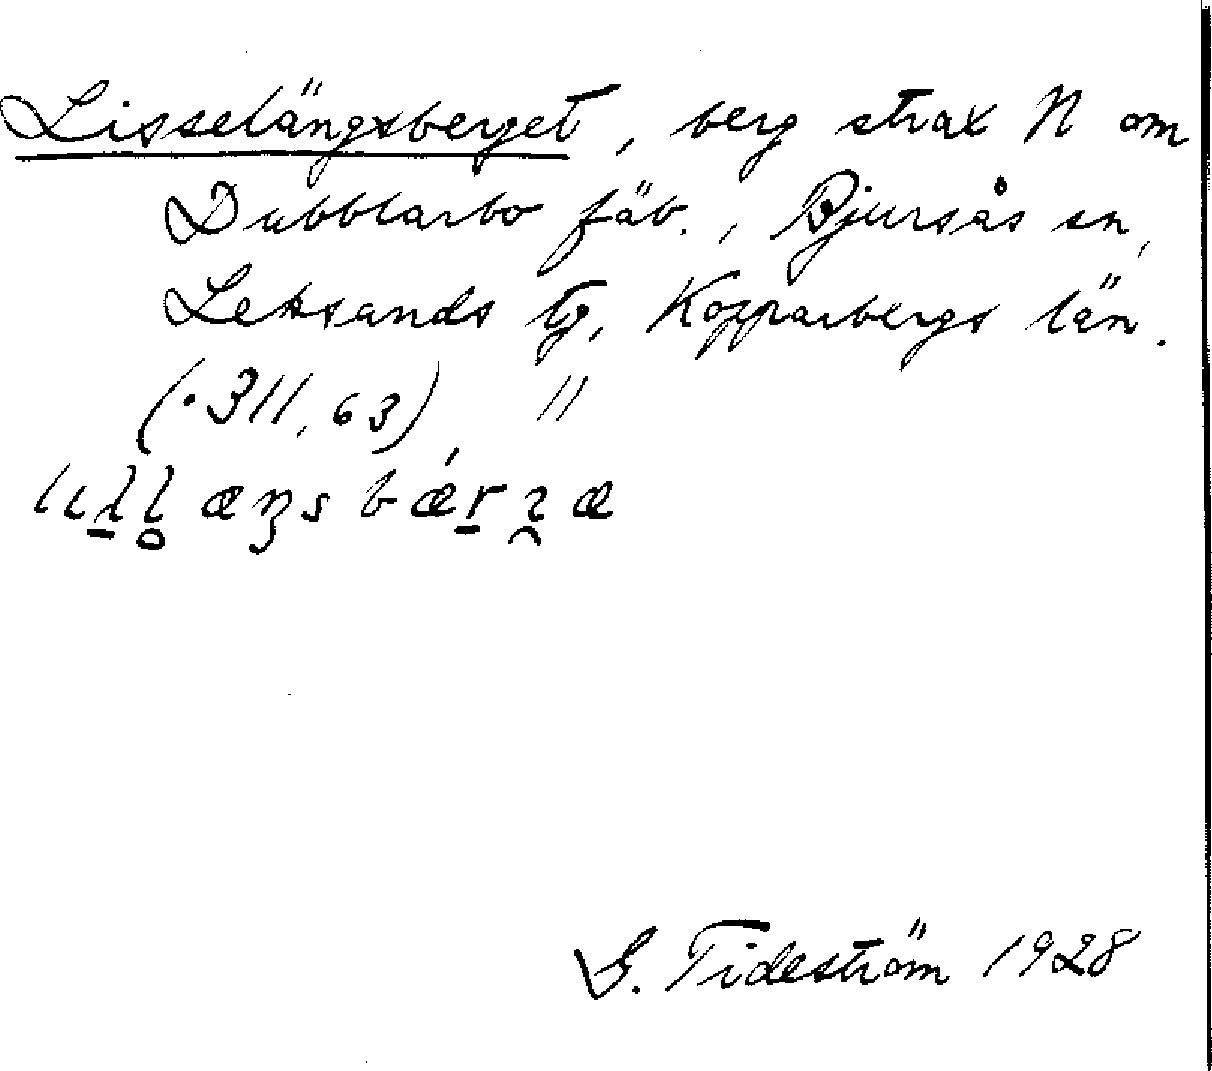 Lisselängsberget, berg strax N om
Dubblarbo fäb., Bjursås sn,
Leksands tg, Kopparbergs län.
(·311,63) "
G. Tideström 1928